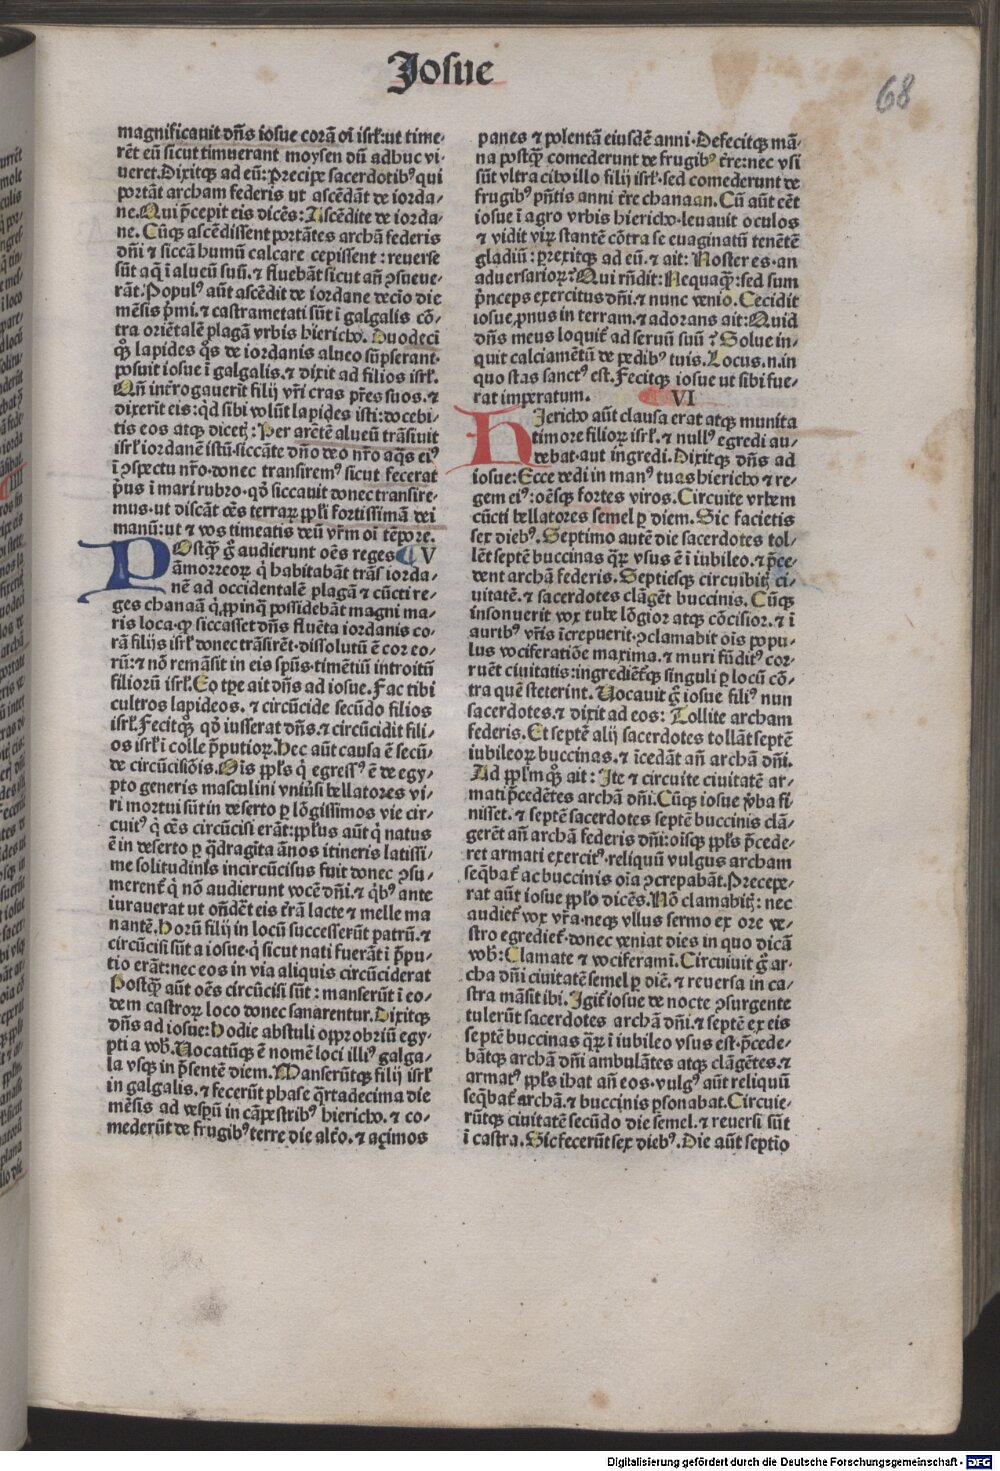 Iosue
68
magnificauit dn̄s iosue corā oī isrł:ut time⸗
rēt eū sicut timuerant moysen dū adhuc vi⸗
ueret.Dixitqꝫ ad eū:Precipe sacerdotibꝰ qui
portāt archam federis ut ascēdāt de iorda⸗
ne.Qui p̄cepit eis dicēs:Ascēdite de iorda⸗
ne. Cūqꝫ ascēdissent portātes archā federis
dn̄i ⁊ siccā humū calcare cepissent : reuerse
sūt aq̄ ī alueū suū.⁊ fluebāt sicut an̄ ꝯsueue⸗
rāt.Populꝰ aūt ascēdit de iordane decīo die
mēsis p̄mi.⁊ castrametati sūt ī galgalis cō⸗
tra oriētalē plagā vrbis hiericho. Duodecī
qꝫ lapides q̄s de iordanis alueo sūpserant⸱
posuit iosue ī galgalis.⁊ dixit ad filios isrł.
Qn̄ int̄rogauerīt filij vr̄i cras pr̄es suos.⁊
dixerīt eis:qd̄ sibi volūt lapides isti:docebi⸗
tis eos atqꝫ dicetꝭ : Per arētē alueū trāsiuit
isrł iordanē istū⸱siccāte dn̄o deo nr̄o aq̄s eiꝰ
ī ꝯspectu nr̄o⸱donec transiremꝰ sicut fecerat
p̄us ī mari rubro⸱qd̄ siccauit donec transire⸗
mus⸱ut discāt oēs terraꝝ pp̄li fortissimā dei
manū:ut ⁊ vos timeatis deū vr̄m oī tēpore.
POstqꝫ gͦ audierunt oēs reges V
amorreoꝝ q̇ habitabāt trās iorda⸗
nē ad occidentalē plagā ⁊ cūcti re⸗
ges chanaā q̇ ꝓpinq̄ possidebāt magni ma⸗
ris loca⸱ꝙ siccasset dn̄s fluēta iordanis co⸗
rā filijs isrł donec trāsirēt⸱dissolutū ē cor eo⸗
rū:⁊ nō remāsit in eis spūs⸱timētiū introitū
filiorū isrł.Eo tꝑe ait dn̄s ad iosue.Fac tibi
cultros lapideos. ⁊ circūcide secūdo filios
isrł.Fecitqꝫ qd̄ iusserat dn̄s.⁊ circūcidit fili⸗
os isrł ī colle p̄putioꝝ.Hec aūt causa ē secū⸗
de circūcisiōis.Oīs pp̄ls q̇ egressꝰ ē de egy⸗
pto generis masculini vniūsi bellatores vi⸗
ri mortui sūt in deserto ꝑ lōgissimos vie cir⸗
cuitꝰ q̇ oēs circūcisi erāt:pp̄lus aūt q̇ natus
ē in deserto ꝑ q̄dragīta ānos itineris latissi⸗
me solitudinis incircūcisus fuit donec ꝯsu⸗
merent̄ q̇ nō audierunt vocē dn̄i.⁊ q̇bꝰ ante
iurauerat ut on̄dēt eis t̄rā lacte ⁊ melle ma
nantē.Horū filij in locū successerūt patrū.⁊
circūcisi sūt a iosue⸱q̇ sicut nati fuerāt ī p̄pu⸗
tio erāt:nec eos in via aliquis circūciderat
Postqꝫ aūt oēs circūcisi sūt : manserūt ī eo⸗
dem castroꝝ loco donec sanarentur.Dixitqꝫ
dn̄s ad iosue:Hodie abstuli opprobriū egy⸗
pti a vob̄.Uocatūqꝫ ē nomē loci illiꝰ galga⸗
la vsqꝫ in p̄sentē diem.Manserūtqꝫ filij isrł
in galgalis.⁊ fecerūt phase q̄rtadecima die
mēsis ad vesꝑū in cāpestribꝰ hiericho.⁊ co⸗
mederūt de frugibꝰ terre die alt̄o.⁊ açimos
panes ⁊ polentā eiusdē anni⸱Defecitqꝫ mā⸗
na postqꝫ comederunt de frugibꝰ t̄re:nec vsi
sūt vltra cibo illo filij isrł⸱sed comederunt de
frugibꝰ pn̄tis anni t̄re chanaan. Cū aūt eēt
iosue ī agro vrbis hiericho⸱leuauit oculos
⁊ vidit viꝝ stantē cōtra se euaginatū tenētē
gladiū: ꝑrexitqꝫ ad eū.⁊ ait: Noster es⸱an
aduersarioꝝ?Qui rn̄dit:Nequaqꝫ:sed sum
p̄nceps exercitus dn̄i.⁊ nunc venio.Cecidit
iosue ꝓnus in terram.⁊ adorans ait:Quid
dn̄s meus loquit̄ ad seruū suū ? Solue in⸗
quit calciamētū de pedibꝰ tuis.Locus.n.in
quo stas sanctꝰ est.Fecitqꝫ iosue ut sibi fue⸗
rat imperatum. VI
HJericho aūt clausa erat atqꝫ munita
timore filioꝝ isrł.⁊ nullꝰ egredi au⸗
debat⸱aut ingredi.Dixitqꝫ dn̄s ad
iosue:Ecce dedi in manꝰ tuas hiericho ⁊ re⸗
gem eiꝰ:oēsqꝫ fortes viros.Circuite vrbem
cūcti bellatores semel ꝑ diem. Sic facietis
sex diebꝰ.Septimo autē die sacerdotes tol⸗
lēt septē buccinas q̄ꝝ vsus ē ī iubileo.⁊ p̄ce⸗
dent archā federis.Septiesqꝫ circuibitꝭ ci⸗
uitatē.⁊ sacerdotes clāgēt buccinis. Cūqꝫ
insonuerit vox tube lōgior atqꝫ cōcisior.⁊ ī
auribꝰ vr̄is īcrepuerit⸱ꝯclamabit oīs popu⸗
lus vociferatiōe maxima.⁊ muri fūditꝰ cor⸗
ruēt ciuitatis:ingredīet̄qꝫ singuli ꝑ locū cō⸗
tra quē steterint.Uocauit gͦ iosue filiꝰ nun
sacerdotes.⁊ dixit ad eos: Tollite archam
federis.Et septē alij sacerdotes tollāt septē
iubileoꝝ buccinas.⁊ īcedāt an̄ archā dn̄i.
Ad pp̄lm̄qꝫ ait : Ite ⁊ circuite ciuitatē ar⸗
mati p̄cedētes archā dn̄i.Cūqꝫ iosue v̄ba fi⸗
nisset.⁊ septē sacerdotes septē buccinis clā⸗
gerēt an̄ archā federis dn̄i:oīsqꝫ pp̄ls p̄cede⸗
ret armati exercitꝰ⸱reliquū vulgus archam
seq̄bat̄ ac buccinis oīa ꝯcrepabāt.Precepe⸗
rat aūt iosue pp̄lo dicēs.Nō clamabitꝭ: nec
audiet̄ vox vr̄a⸱neqꝫ vllus sermo ex ore ve⸗
stro egrediet̄⸱donec veniat dies in quo dicā
vob̄:Clamate ⁊ vociferamī.Circuiuit gͦ ar⸗
cha dn̄i ciuitatē semel ꝑ diē.⁊ reuersa in ca⸗
stra māsit ibi.Igit̄ iosue de nocte ꝯsurgente
tulerūt sacerdotes archā dn̄i.⁊ septē ex eis
septē buccinas q̄ꝝ ī iubileo vsus est⸱p̄cede⸗
bātqꝫ archā dn̄i ambulātes atqꝫ clāgētes.⁊
armatꝰ pp̄ls ibat an̄ eos⸱vulgꝰ aūt reliquū
seq̄bat̄ archā.⁊ buccinis ꝑsonabat.Circuie⸗
rūtqꝫ ciuitatē secūdo die semel.⁊ reuersi sūt
ī castra.Sic fecerūt sex diebꝰ.Die aūt septīo
Digitalisierung gefördert durch die Deutsche Forschungsgemeinschaft - DFG